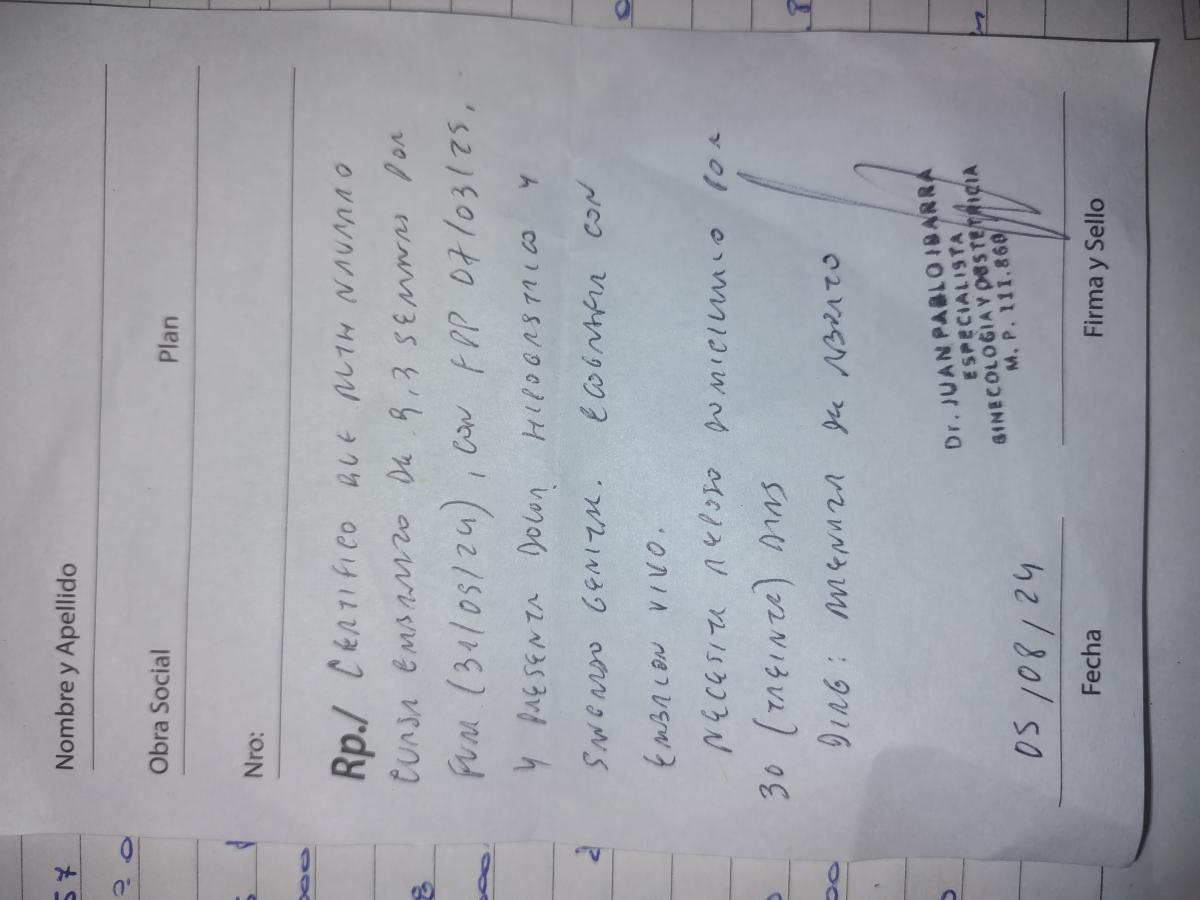 Nombre y Apellido
Obra Social Plan
Nro:
Rp./ CERTIFICO QUE
CURSA EMBARAZO DE 9,3 SEMANAS POR
FUM (31/05/24), CON FPP 07/03/25,
Y PRESENTA DOLOR HIPOGASTRICO Y
SANGRADO GENITAL. ECOGRAFIA CON
EMBRION VIVO.
NECESITA REPOSO DOMICILIARIO POR
30 (TREINTA) DIAS
DIAG: AMENAZA DE ABORTO
Dr. JUAN PABLO IBARRA
ESPECIALISTA
GINECOLOGIA Y OBSTETRICIA
M. P. 111.860
05/08/24
Fecha Firma y Sello
57